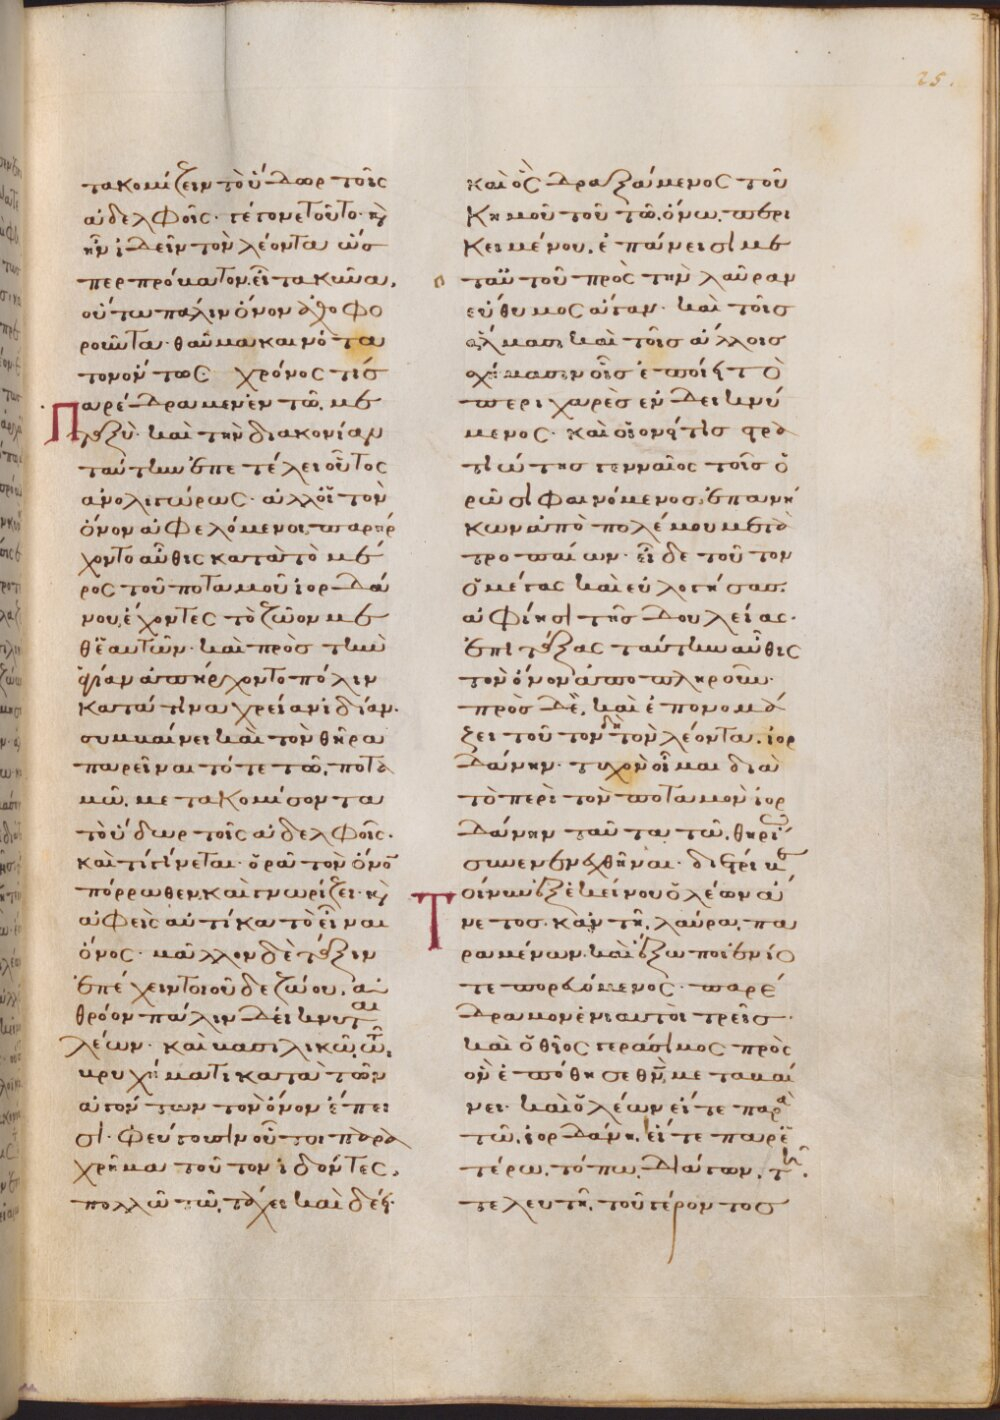 25.
τακομίζειν τὸ ὕδωρ τοῖς
ἀδελφοῖς· γέγονε τοῦτο· κ(αὶ)
ἦν ἰδεῖν τὸν λέοντα ὥσ
περ πρόβατον, εἴτα κῦνα,
οὕτω πάλιν ὄνον ἀχθοφο
ροῦντα· θαῦμα καινότα
τον ὄντως· χρόνος τίς
παρέδραμεν ἐν τῶ, με
ταξὺ· καὶ τὴν διακονίαν
ταύτην ἐπετέλει οὗτος
ἀνολιγώρως· ἀλλ' οἳ τὸν
ὄνον ἀφελόμενοι, παρήρ
χοντο αὖθις κατὰ τὸ μέ
ρος τοῦ ποταμοῦ ἰορδά
νου, ἔχοντες τὸ ζῶον με
θ' ἑαυτῶν· καὶ πρὸς τὴν
ἁγίαν ἀπήρχοντο πόλιν
κατά τινα χρείαν ἰδίαν·
συμβαίνει καὶ τὸν θῆρα
παρεῖναι τότε τῶ, ποτα
μῶ, μετακομίσοντα
τὸ ὕδωρ τοῖς ἀδελφοῖς·
καὶ τί γίνεται· ὁρᾶ τὸν ὄνο(ν)
πόρρωθεν, καὶ γνωρίζει· κ(αὶ)
ἀφεὶς αὐτίκα τὸ εἶναι
ὄνος· μᾶλλον δὲ τάξιν
ἐπέχειν τοιοῦδε ζώου, ἀ
θρόον πάλιν δείκνυται
λέων· καὶ βασιλικῶ, τῶ,
βρυχήματι κατὰ τῶν
ἀγόντων τὸν ὄνον ἔπει
σι· φεύγουσιν οὗτοι παρα
χρῆμα τοῦτον ἰδόντες,
πολλῶ τῶ, τάχει καὶ δέει·
καὶ ὃς δραξάμενος τοῦ
κημοῦ τοῦ τῶ, ὄνω, περι
κειμένου, ἐπάνεισι με
τ' αὐτοῦ πρὸς τὴν λαῦραν
εὔθυμος ἄγαν· καὶ τοῖς
ἅλμασι καὶ τοῖς ἄλλοις
σχήμασιν οἷς ἐποίει τὸ
περιχαρὲς ἐνδεικνύ
μενος· καὶ οἱονεί τις στρα
τιώτης γενναῖος τοῖς ὁ
ρῶσι φαινόμενος, ἐπανή
κων ἀπὸ πολέμου μετὰ
τροπαίων· εἶδε τοῦτον
ὁ μέγας καὶ εὐλογήσας
ἀφίησι τῆς δουλείας·
ἐπιτάξας ταύτην αὖθις
τὸν ὄνον ἀποπληροῦν·
πρὸς δὲ, καὶ ἐπονομά
ζει τοῦτον δὴ τὸν λέοντα, ἰορ
δάνην· τυχὸν οἶμαι διὰ
τὸ περὶ τὸν ποταμὸν ἰορ
δάνην ταῦτα τῶ, θηρίω
συνενεχθῆναι· διέτριβε
τοίνυν ἐξ ἐκείνου ὁ λέων ἀ
νετος· κἀν τῆ, λαύρα, πα
ραμένων· καὶ ἔξω ποι ἐνίο
τε πορευόμενος· παρέ
δραμον ἐνιαυτοὶ τρεῖς·
καὶ ὁ θεῖος γεράσιμος πρὸς
ὃν ἐπόθησε θ(εὸ)ν, μεταβαί
νει· καὶ ὁ λέων εἴτε παρὰ
τῶ, ἰορδάνη, εἴτε παρ' ἑ
τέρω, τόπω, διάγων, τῆ
τελευτῆ, τοῦ γέροντος